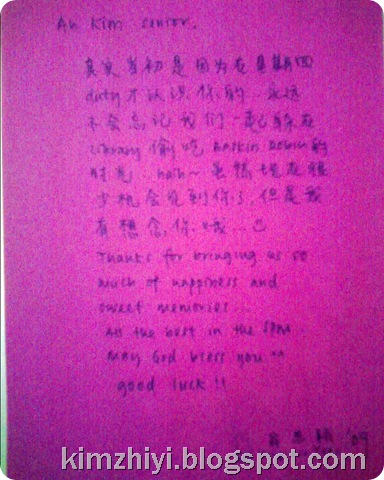 Ah Kim senior.
其实当初是因为在星期四
duty才认识你的.. 永远
不会忘记我们一起躲在
library 偷吃 Baskin Robin的
时光.. hah~ 虽然现在很
少机会见到你了, 但是我
有想念你哦...
Thanks for bringing us so
much of happiness and
sweet memories...
All the best in the SPM.
May God bless you ^^
good luck!!
'09
kimzhiyi.blogspot.com